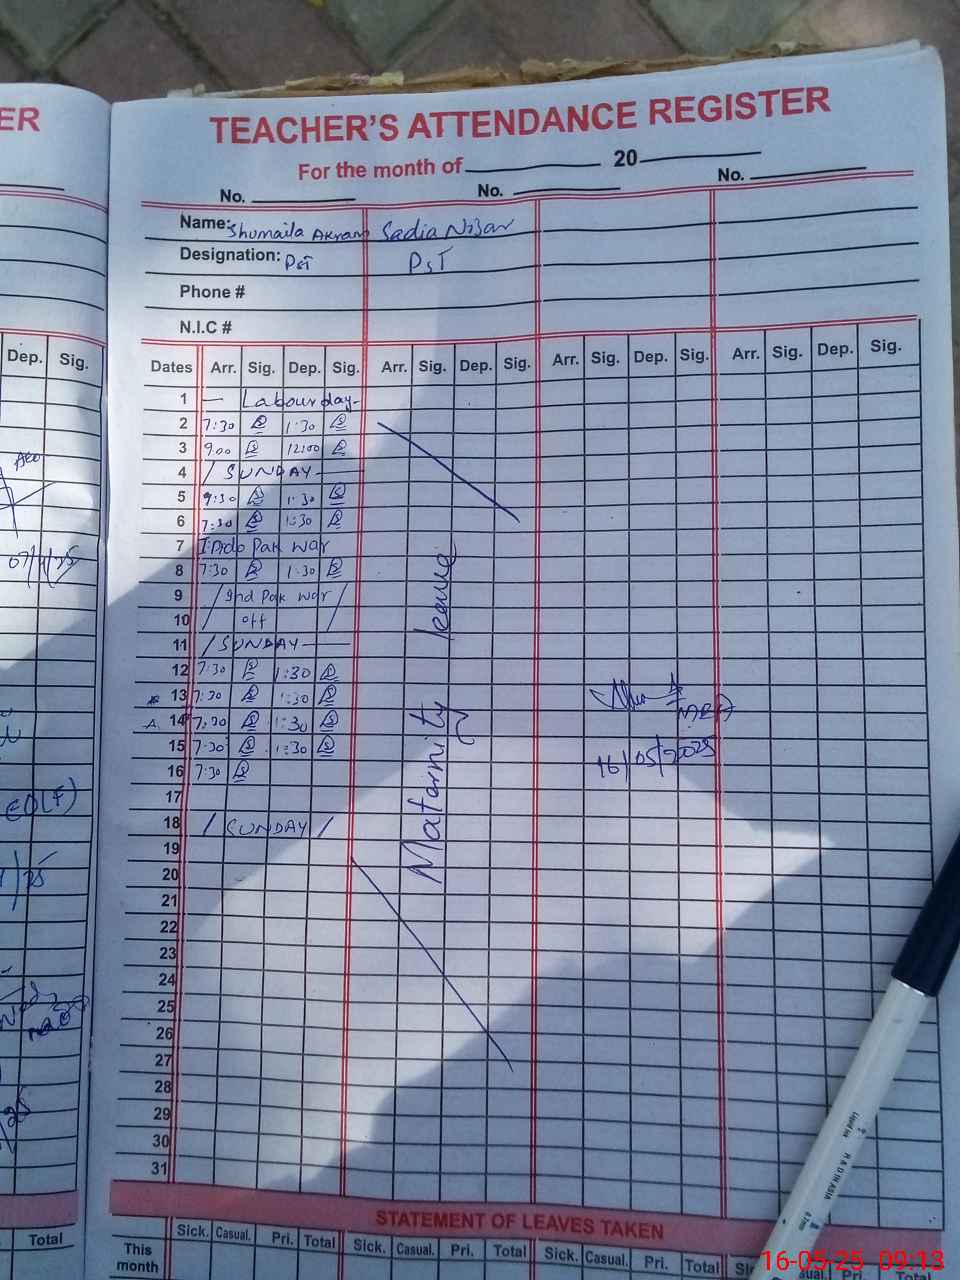 ER
TEACHER'S ATTENDANCE REGISTER
For the month of 20
No. No. No.
Name: Shumaila Akram Sadia Nisar
Designation: PST PST
Phone #
N.I.C #
Dep. Sig. Dates Arr. Sig. Dep. Sig. Arr. Sig. Dep. Sig. Arr. Sig. Dep. Sig. Arr. Sig. Dep. Sig.
1 — Labour day-
2 7:30 1:30
3 9:00 12:00
4 / SUNDAY —
5 9:30 1:30
6 7:30 1:30
7 Indo Pak war
8 7:30 1:30
9 / Ind Pak war /
10 off
11 / SUNDAY —
12 7:30 1:30
13 7:30 1:30
14 7:30 1:30
15 7:30 1:30
16 7:30
17
18 / SUNDAY /
19
20
21
22
23
24
25
26
27
28
29
30
31
Matarnity leave
MEA
16/05/2025
AEO
07/4/25
EO(F)
STATEMENT OF LEAVES TAKEN
Total This month Sick. Casual. Pri. Total Sick. Casual. Pri. Total Sick. Casual. Pri. Total
16-05-25 09:13